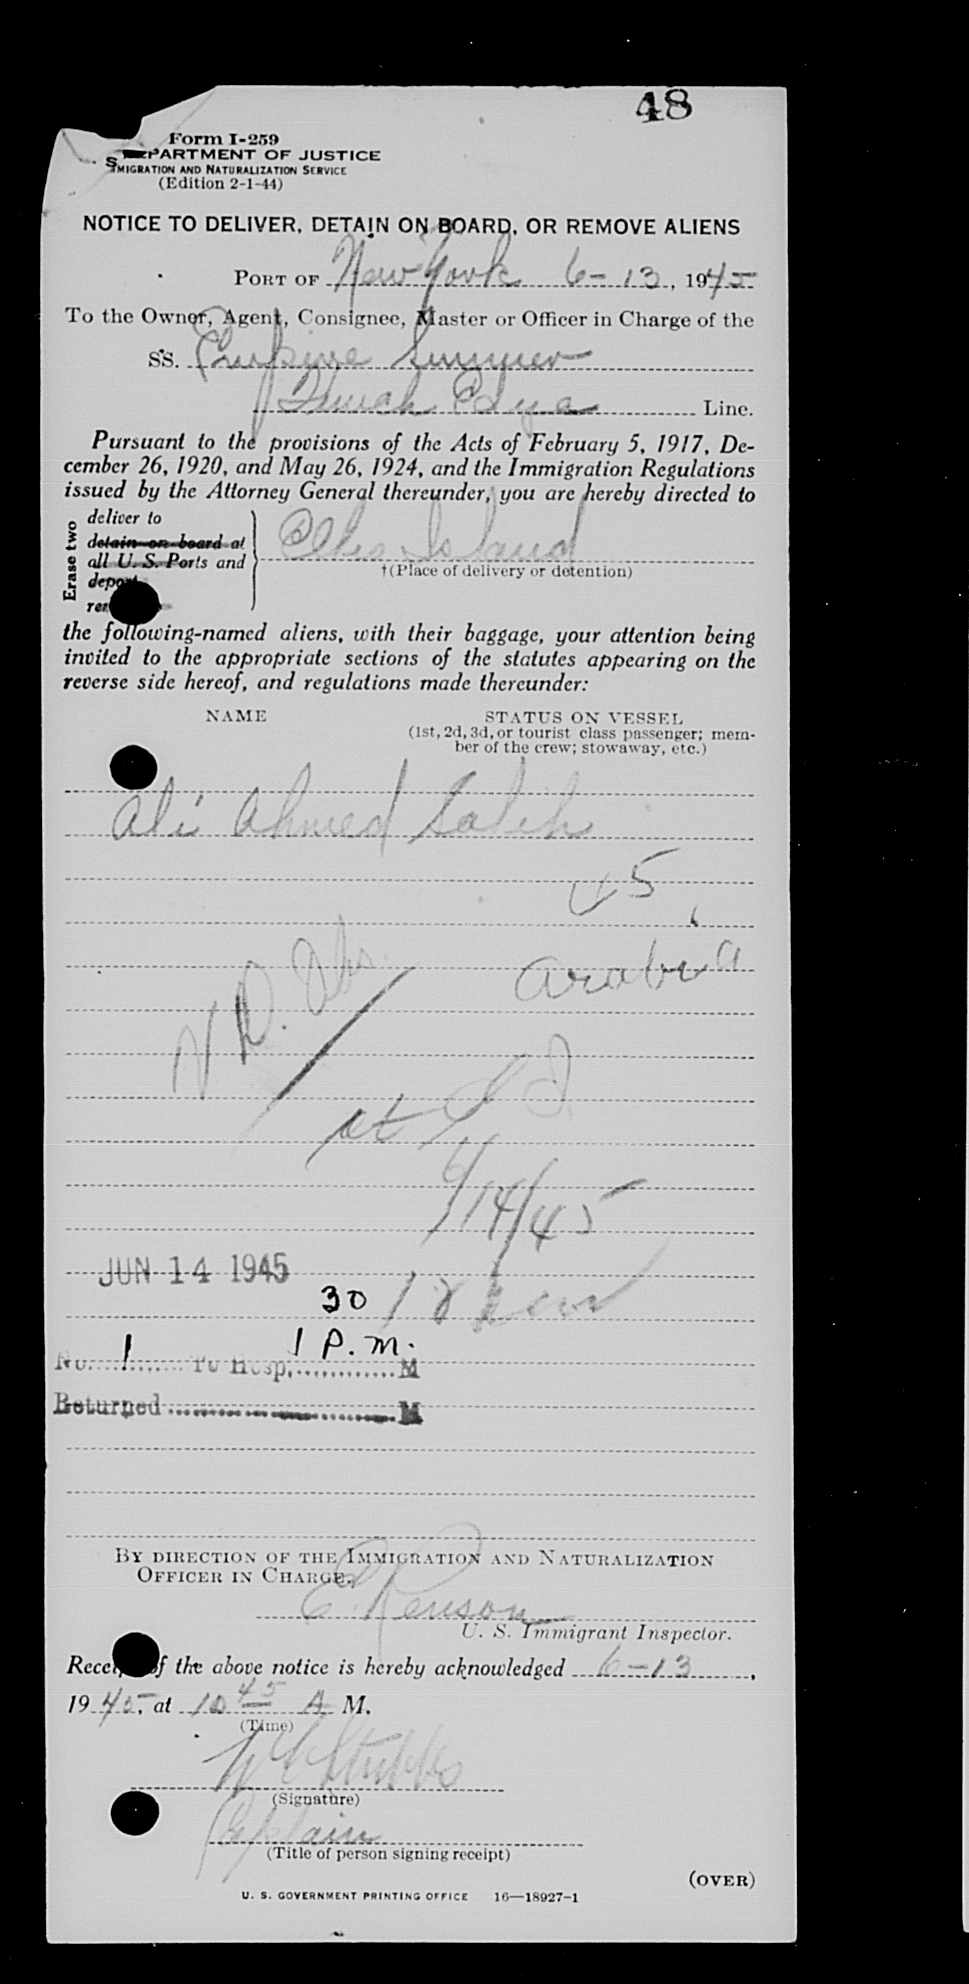 48
Form I-259
DEPARTMENT OF JUSTICE
IMMIGRATION AND NATURALIZATION SERVICE
(Edition 2-1-44)
NOTICE TO DELIVER, DETAIN ON BOARD, OR REMOVE ALIENS
PORT OF New York 6-13, 1945
To the Owner, Agent, Consignee, Master or Officer in Charge of the
SS.
Line.
Pursuant to the provisions of the Acts of February 5, 1917, De-
cember 26, 1920, and May 26, 1924, and the Immigration Regulations
issued by the Attorney General thereunder, you are hereby directed to
Erase two
deliver to
detain on board at
all U. S. Ports and
deport
Ellis Island
†(Place of delivery or detention)
the following-named aliens, with their baggage, your attention being
invited to the appropriate sections of the statutes appearing on the
reverse side hereof, and regulations made thereunder:
NAME STATUS ON VESSEL
(1st, 2d, 3d, or tourist class passenger; mem-
ber of the crew; stowaway, etc.)
Ali Ahmed Salih
45
Arabia
VD. Obs.
at
6/14/45
JUN 14 1945
30
1 P.M.
No. 1 To Hosp. M
Returned M
BY DIRECTION OF THE IMMIGRATION AND NATURALIZATION
OFFICER IN CHARGE.
E. Renson
U. S. Immigrant Inspector.
Receipt of the above notice is hereby acknowledged 6-13,
1945, at 10 45 A M.
(Time)
W E Stubbs
(Signature)
Captain
(Title of person signing receipt)
(OVER)
U. S. GOVERNMENT PRINTING OFFICE 16—18927-1